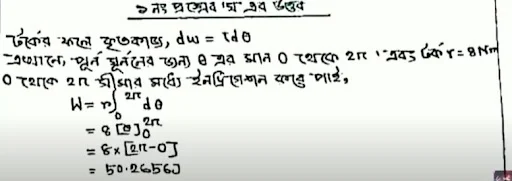 ৯ নং প্রশ্নের 'গ' এর উত্তর
টর্কের ফলে কৃতকাজ, dw = τdθ
এখানে, পূর্ন ঘূর্ননের জন্য θ এর মান 0 থেকে 2π এবং টর্ক τ = 8 Nm
0 থেকে 2π সীমার মধ্যে ইনট্রিগেশন করে পাই,
W = τ∫₀²π dθ
= 8 [θ]₀²π
= 8 × [2π-0]
= 50.2656J